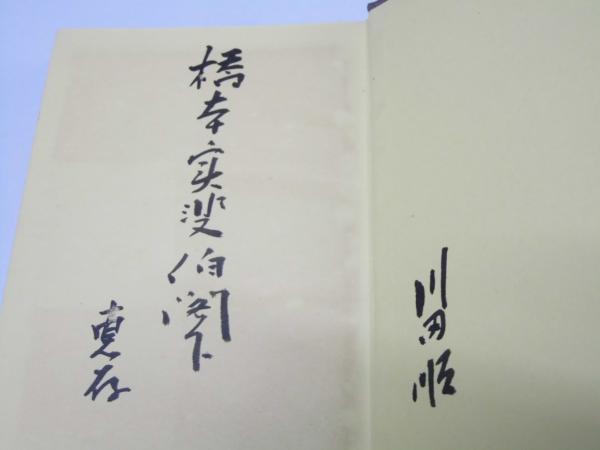 川田順
橋本実斐伯閣下
恵存